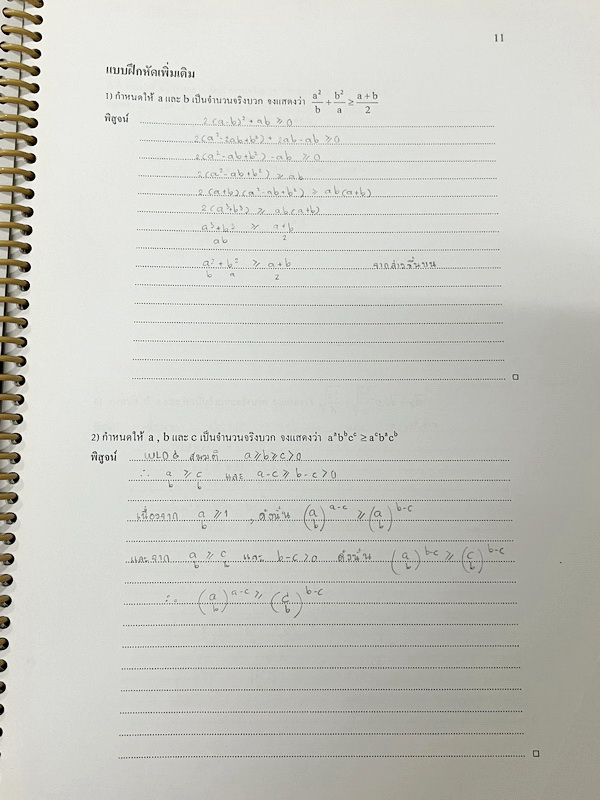 11
แบบฝึกหัดเพิ่มเติม
1) กำหนดให้ a และ b เป็นจำนวนจริงบวก จงแสดงว่า a²/b + b²/a ≥ (a+b)/2
พิสูจน์ 2(a-b)² + ab ≥ 0
2(a²-2ab+b²) + 2ab - ab ≥ 0
2(a²-ab+b²) - ab ≥ 0
2(a²-ab+b²) ≥ ab
2(a+b)(a²-ab+b²) ≥ ab(a+b)
2(a³+b³) ≥ ab(a+b)
(a³+b³)/ab ≥ (a+b)/2
a²/b + b²/a ≥ (a+b)/2
2) กำหนดให้ a , b และ c เป็นจำนวนจริงบวก จงแสดงว่า aᵃbᵇcᶜ ≥ aᶜbᵃcᵇ
พิสูจน์ WLOG สมมติ a ≥ b ≥ c > 0
∴ a/b ≥ c/b และ a-c ≥ b-c > 0
เนื่องจาก a/b ≥ 1 , ดังนั้น (a/b)^(a-c) ≥ (a/b)^(b-c)
และจาก a/b ≥ c/b และ b-c > 0 ดังนั้น (a/b)^(b-c) ≥ (c/b)^(b-c)
∴ (a/b)^(a-c) ≥ (c/b)^(b-c)